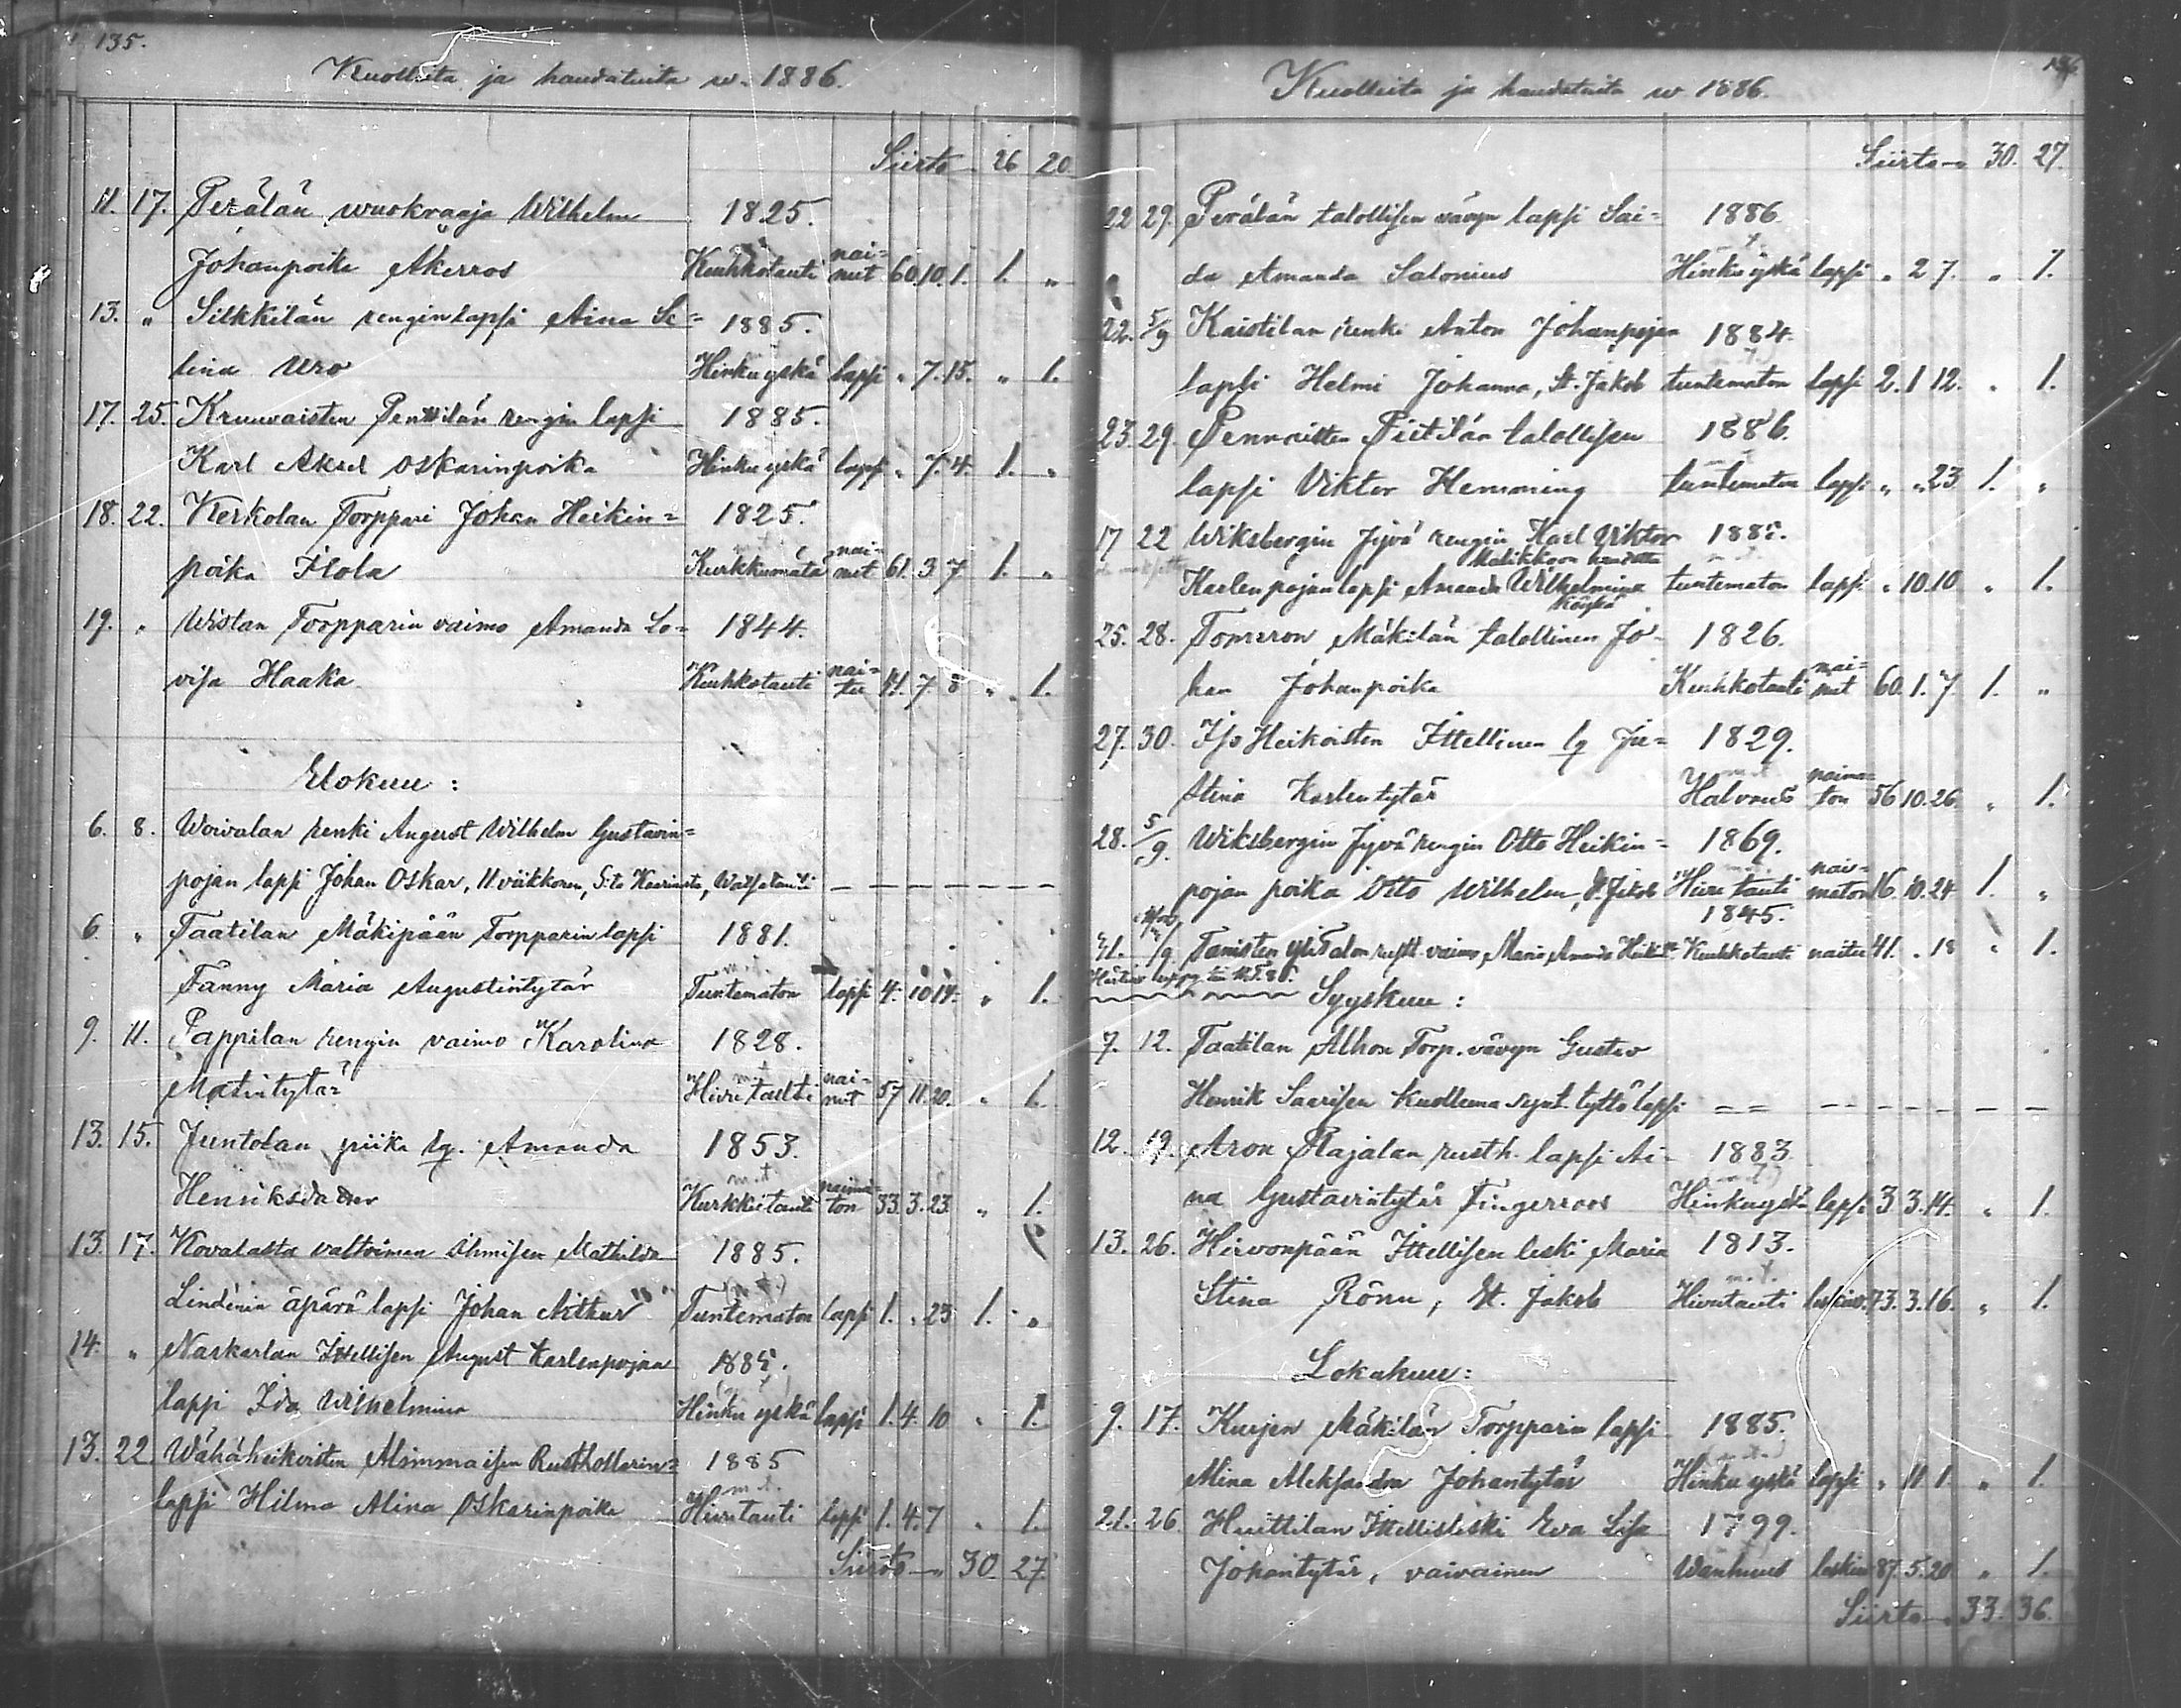 135.
Kuolleita ja haudatuita w. 1886.
Siirto 26 20
11. 17. Perälän wuokraaja Wilhelm 1825.
Johanpoika Akerros Keuhkotauti nai=nut 60. 10. 1. 1. "
13. " Silkkilän renginlapsi Aina Se= 1885.
lina Uro Hinku yskä lapsi " 7. 15. " 1.
17. 25. Kruuvaisten Penttilän rengin lapsi 1885.
Karl Aksel Oskarinpoika Hinku yskä lapsi " 7. 4. 1. "
18. 22. Kerkolan Torppari Johan Heikin= 1825.
poika Flola Kurkkumätä nai=nut 61. 3 7 1. "
19. " Wistan Torpparin vaimo Amanda Lo= 1844.
visa Haaka Keuhkotauti nai=tu 41. 7. 8 " 1.
Elokuu:
6. 8. Woivalan renki August Wilhelm Gustavin=
pojan lapsi Johan Oskar, 11 viikkonen, S:ta Kaarinasta,
6. " Taatilan Mäkipään Torpparin lapsi 1881.
Fanny Maria Augustintytär Tuntematon lapsi 4. 10 14. " 1.
9. 11. Pappilan rengin vaimo Karolina 1828.
Matintytär m.t. nai=nut 57 11. 20. " 1.
13. 15. Juntolan piika lg. Amanda 1853.
Henriksdotter m.t Kurkkutauti naima=ton 33. 3. 23. " 1.
13. 17. Kovalasta valtoimen ihmisen Mathilda 1885.
Lindénin äpärä lapsi Johan Arthur Tuntematon lapsi 1. " 23 1. "
14. " Naskarlan Itsellisen August Karlenpojan 1885.
lapsi Ida Wilhelmina Hinku yskä lapsi 1. 4. 10 " 1.
13. 22. Wähäheikoisten Alimmaisen Rusthollarin= 1885
lapsi Hilma Alina Oskarinpoika m.t. lapsi 1. 4. 7 " 1.
Siirto 30. 27.
136
Kuolleita ja haudatuita w 1886.
Siirto 30. 27.
22 29. Perälän talollisen vävyn lapsi Sai= 1886
" da Amanda Salonius Hinku yskä lapsi " 2 7. " 1.
22. 5/9 Kaistilan renki Anton Johanpojan 1884.
lapsi Helmi Johanna, St. Jakob tuntematon lapsi 2. 1 12. " 1.
23. 29. Pennoisten Pietilän talollisen 1886.
lapsi Viktor Hemming tuntematon lapsi " " 23 1. "
17 22 Wiksbergin Jyvä rengin Karl Viktor
Karlen pojan lapsi Amanda Wilhelmina tuntematon lapsi " 10. 10 " 1.
25. 28. Mäkilän talollinen Jo= 1826.
han Johanpoika Keuhkotauti nai=nut 60. 1. 7. 1. "
27. 30. Iso Heikoisten Itsellinen lg Ju= 1829.
stina Karlentytär Halvaus naima=ton 56 10. 26. " 1.
28. 5/9. Wiksbergin Jyvä rengin Otto Heikin= 1869.
pojan poika Otto Wilhelm, St. Jakob nai=maton 16. 10. 24 1. "
1845.
vaimo, Maria Amanda Keuhkotauti naitu 41. " 18 " 1.
Syyskuu:
7. 12. Taatilan Alhon Torp. vävyn Gustav
Henrik Saarisen kuolleena synt. tyttölapsi
12. 19. Aron Rajalan rusth. lapsi Ai= 1883.
na Gustavintytär Fingerroos Hinkuyskä lapsi 3 3. 14. " 1.
13. 26. Hirvonpään Itsellisen leski Maria 1813.
Stina Rönn, St. Jakob m.t. leskivo 73. 3. 16. " 1.
Lokakuu:
9. 17. Kurjen Mäkilän Torpparin lapsi 1885.
Mina Aleksandra Johantytär Hinku yskä lapsi " 11 1. " 1.
21. 26. Huittilan Itsellisleski Eva Lisa 1799.
Johantytär, vaivainen Wanhuus leskivo 87. 5. 20 " 1.
Siirto 33. 36.